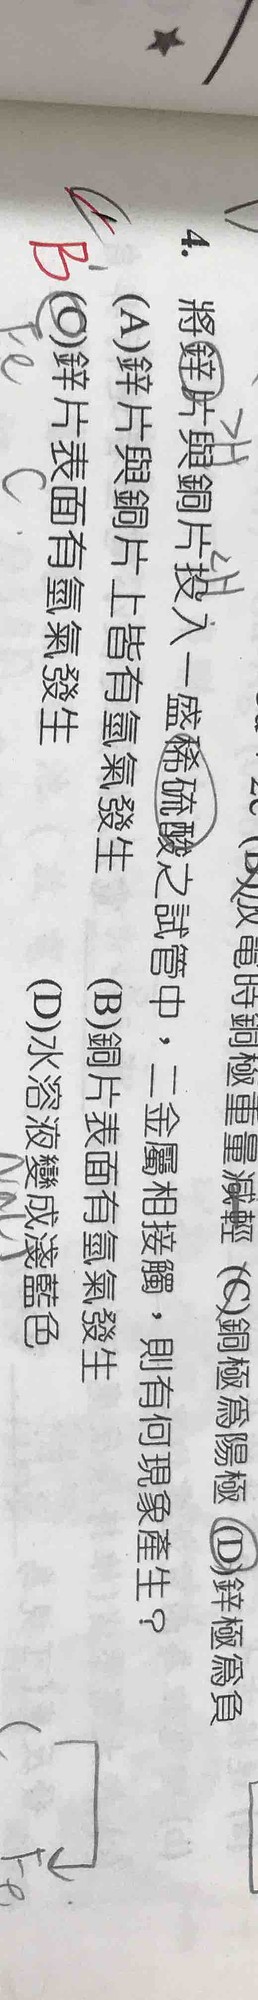 (B)放電時銅極重量減輕 (C)銅極為陽極 (D)鋅極為負
4. 將鋅片與銅片投入一盛稀硫酸之試管中,二金屬相接觸,則有何現象產生?
(A)鋅片與銅片上皆有氫氣發生 (B)銅片表面有氫氣發生
B (C)鋅片表面有氫氣發生 (D)水溶液變成淺藍色
Fe C
Fe